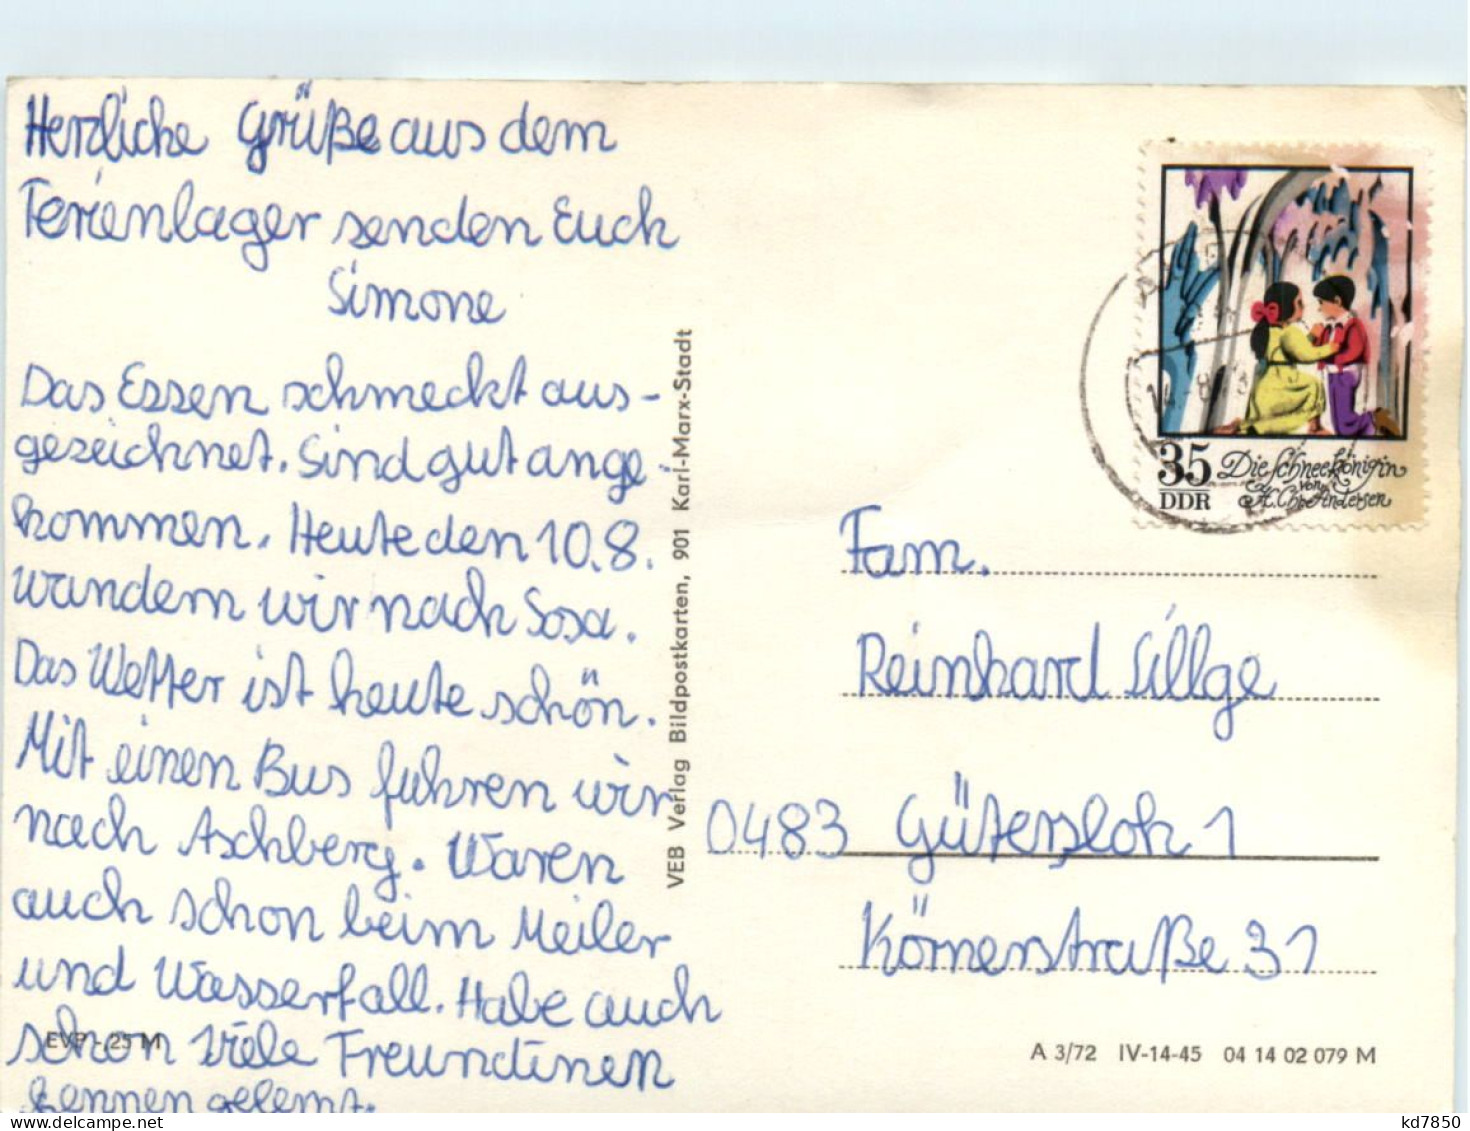 Herzliche Grüße aus dem
Ferienlager senden Euch
Simone
Das Essen schmeckt aus-
gezeichnet. Sind gut ange-
kommen. Heute den 10.8.
wandern wir nach Sosa.
Das Wetter ist heute schön.
Mit einen Bus fuhren wir
nach Aschberg. Waren
auch schon beim Meiler
und Wasserfall. Habe auch
schon viele Freundinen
kennen gelernt.
EVP -,25 M
VEB Verlag Bildpostkarten, 901 Karl-Marx-Stadt
35 Die Schneekönigin
von
DDR H. Chr. Andersen
Fam.
Reinhard Sillge
0483 Gütersloh 1
Körnerstraße 31
A 3/72 IV-14-45 04 14 02 079 M
kd7850